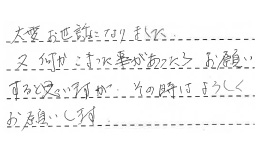 大変お世話になりました。
又何かこまった事があったら お願い
すると思いますが、その時はよろしく
お願いします